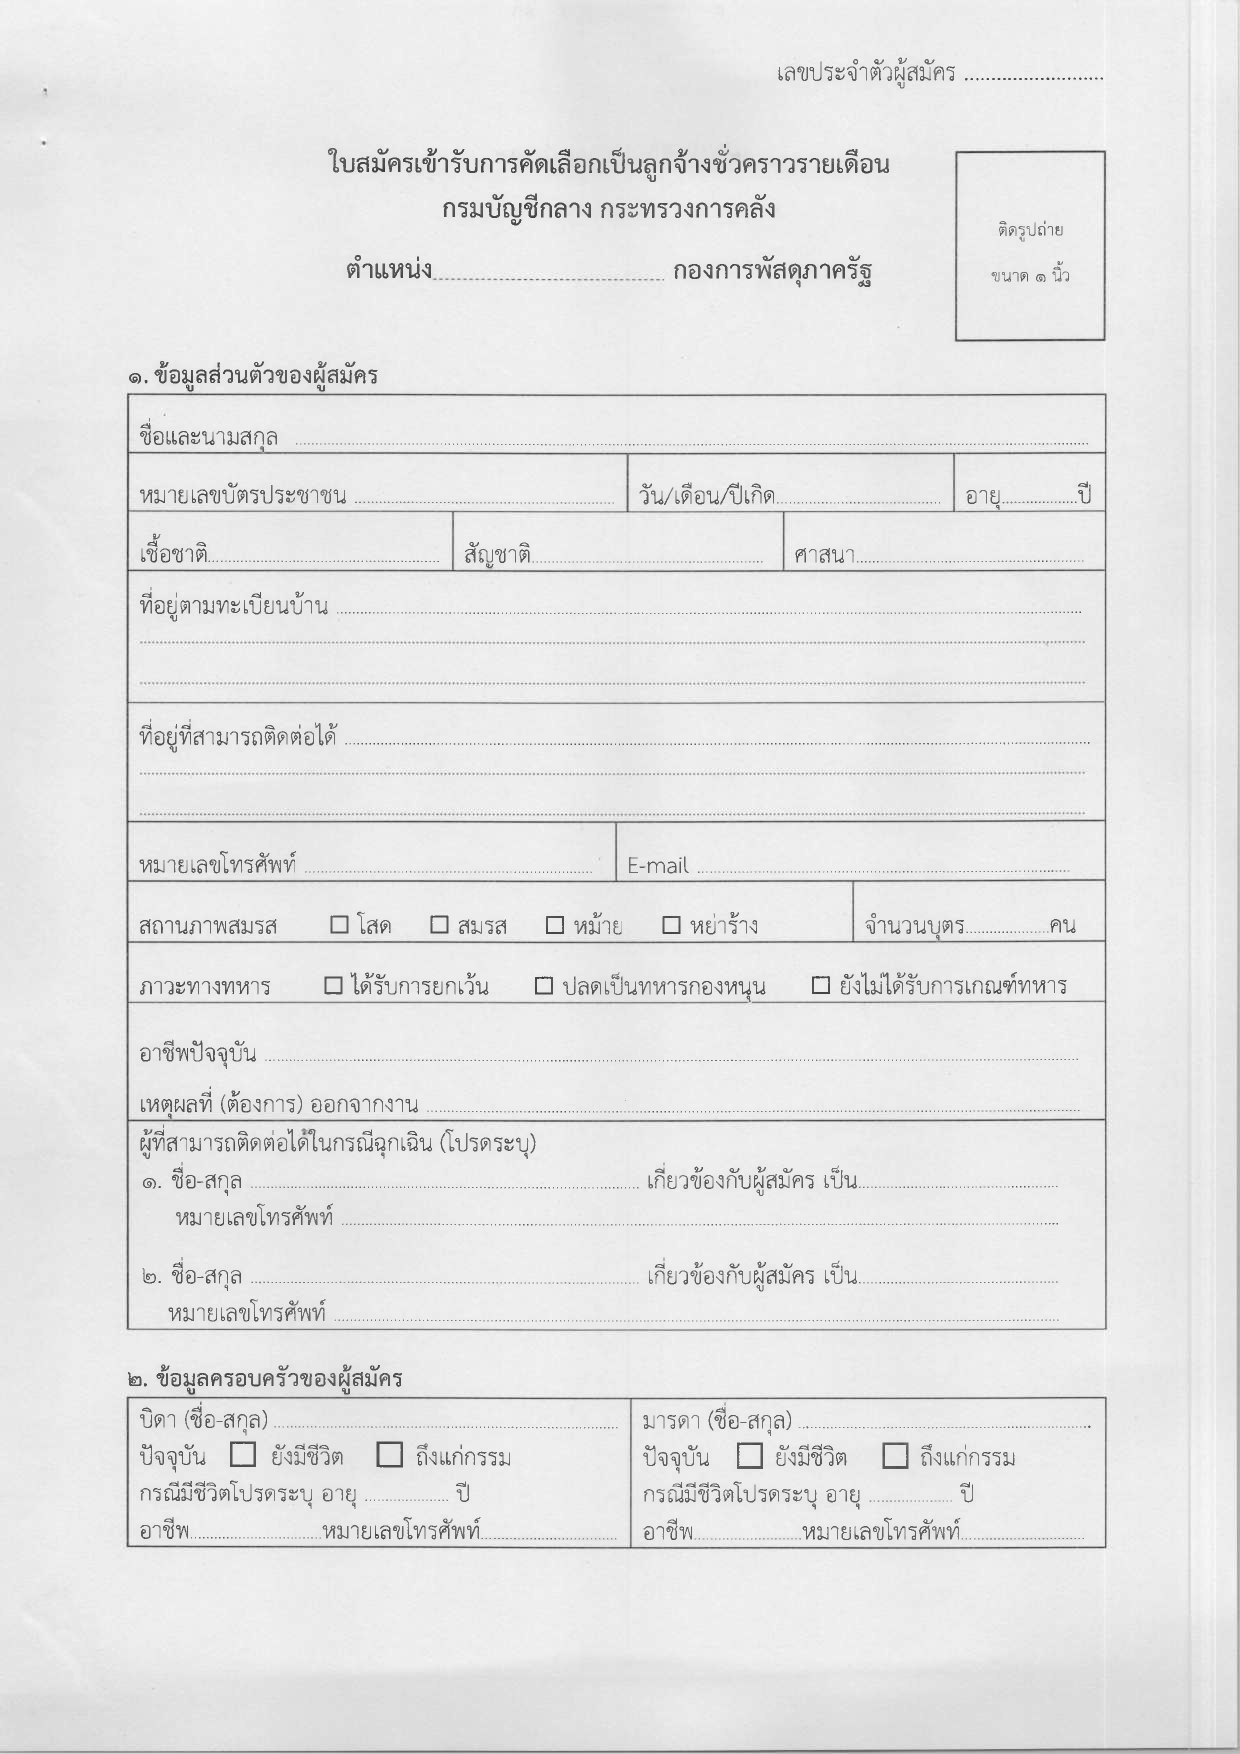 เลขประจำตัวผู้สมัคร ..........................
ใบสมัครเข้ารับการคัดเลือกเป็นลูกจ้างชั่วคราวรายเดือน
กรมบัญชีกลาง กระทรวงการคลัง
ตำแหน่ง.................................. กองการพัสดุภาครัฐ
ติดรูปถ่าย
ขนาด ๑ นิ้ว
๑. ข้อมูลส่วนตัวของผู้สมัคร
ชื่อและนามสกุล ..........................
หมายเลขบัตรประชาชน .......................... วัน/เดือน/ปีเกิด.......................... อายุ..................ปี
เชื้อชาติ.......................... สัญชาติ.......................... ศาสนา..........................
ที่อยู่ตามทะเบียนบ้าน ..........................
..........................
..........................
ที่อยู่ที่สามารถติดต่อได้ ..........................
..........................
..........................
หมายเลขโทรศัพท์ .......................... E-mail ..........................
สถานภาพสมรส ☐ โสด ☐ สมรส ☐ หม้าย ☐ หย่าร้าง จำนวนบุตร....................คน
ภาวะทางทหาร ☐ ได้รับการยกเว้น ☐ ปลดเป็นทหารกองหนุน ☐ ยังไม่ได้รับการเกณฑ์ทหาร
อาชีพปัจจุบัน ..........................
เหตุผลที่ (ต้องการ) ออกจากงาน ..........................
ผู้ที่สามารถติดต่อได้ในกรณีฉุกเฉิน (โปรดระบุ)
๑. ชื่อ-สกุล .......................... เกี่ยวข้องกับผู้สมัคร เป็น..........................
หมายเลขโทรศัพท์ ..........................
๒. ชื่อ-สกุล .......................... เกี่ยวข้องกับผู้สมัคร เป็น..........................
หมายเลขโทรศัพท์ ..........................
๒. ข้อมูลครอบครัวของผู้สมัคร
บิดา (ชื่อ-สกุล) ..........................
ปัจจุบัน ☐ ยังมีชีวิต ☐ ถึงแก่กรรม
กรณีมีชีวิตโปรดระบุ อายุ .................... ปี
อาชีพ..........................หมายเลขโทรศัพท์..........................
มารดา (ชื่อ-สกุล) ..........................
ปัจจุบัน ☐ ยังมีชีวิต ☐ ถึงแก่กรรม
กรณีมีชีวิตโปรดระบุ อายุ .................... ปี
อาชีพ..........................หมายเลขโทรศัพท์..........................